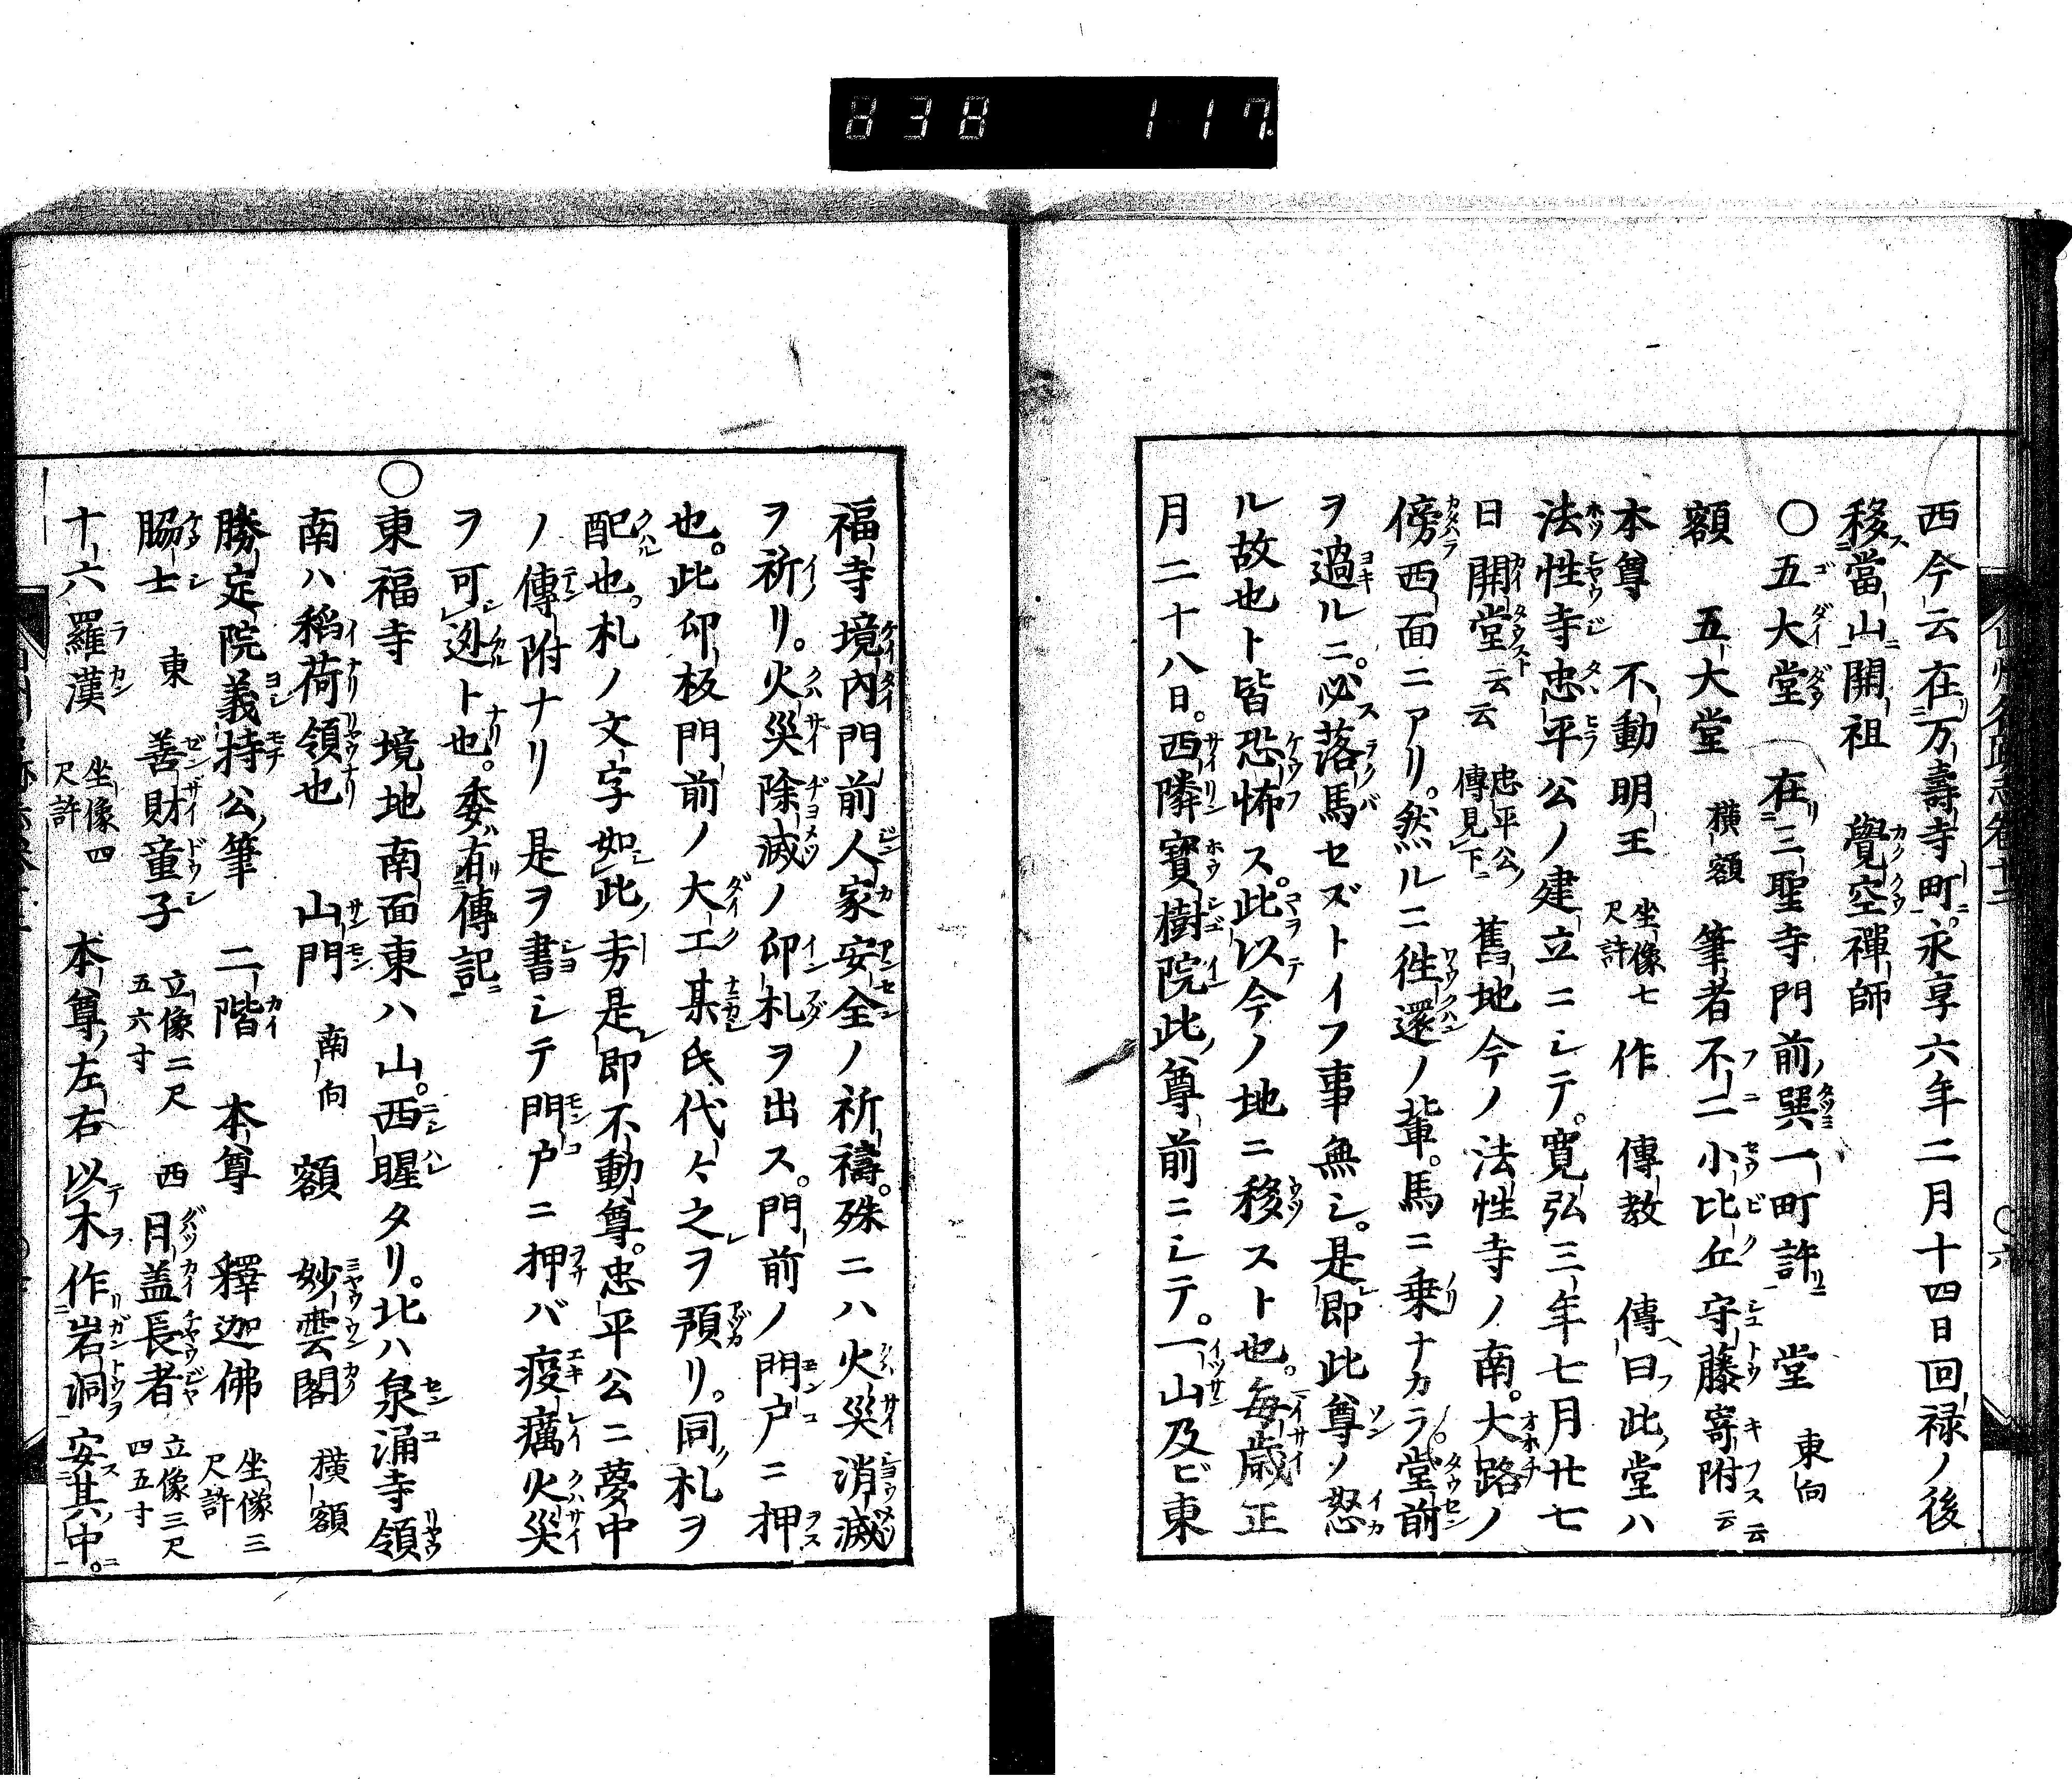 838 117
西今云在万壽寺町永享六年二月十四日回禄ノ後
移當山開祖 覺空禪師
○五大堂 在三聖寺門前巽一町許 堂 東向
額 五大堂 横額 筆者不二小比丘守藤寄附云云
本尊 不動明王 坐像七尺許 作 傳教 傳曰此堂ハ
法性寺忠平公ノ建立ニシテ。寛弘三年七月廿七
日開堂云云 忠平公傳見下 舊地今ノ法性寺ノ南。大路ノ
傍西面ニアリ。然ルニ徃還ノ輩。馬ニ乗ナカラ堂前
ヲ過ルニ。必落馬セズトイフ事無シ。是即此尊ノ怒
ル故也ト皆恐怖ス。此以今ノ地ニ移スト也。毎歳正
月二十八日。西隣寶樹院此尊前ニシテ。一山及ビ東
福寺境内門前人家安全ノ祈禱。殊ニハ火災消滅
ヲ祈リ。火災除滅ノ印札ヲ出ス。門前ノ門戸ニ押
也。此印板門前ノ大工某氏代々之ヲ預リ。同札ヲ
配也。札ノ文字如此 是即不動尊。忠平公ニ夢中
ノ傳附ナリ 是ヲ書シテ門戸ニ押バ疫癘火災
ヲ可迯ト也。委有傳記
○東福寺 境地南面東ハ山。西暒タリ。北ハ泉涌寺領
南ハ稻荷領也 山門 南向 額 妙雲閣 横額
勝定院義持公筆 二階 本尊 釋迦佛 坐像三尺許
脇士 東 善財童子 立像二尺五六寸 西 月盖長者 立像三尺四五寸
十六羅漢 坐像四尺許 本尊左右以木作岩洞安其中。